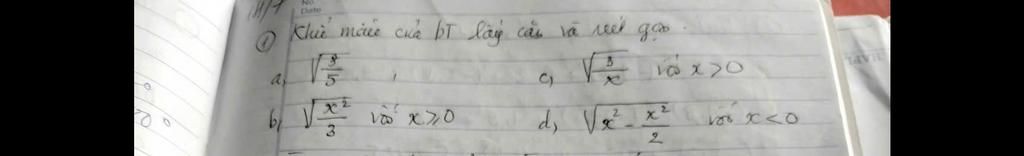 14/7
No
Date
① Khử mẫu của bT lấy căn và rút gọn.
a, √(3/5) , c, √(3/x) với x>0
b, √(x²/3) với x⩾0 d, √(x² - x²/2) với x<0